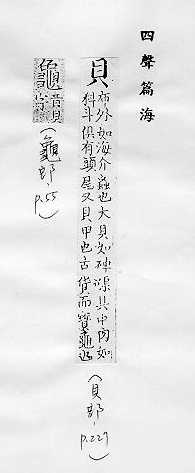 四聲篇海
貝
布外切海介蟲也大貝如硨渠其中肉如
科斗俱有頭尾又貝甲也古貨而寶龜也
(貝部 p.227)
音貝
(龜部 p.55)